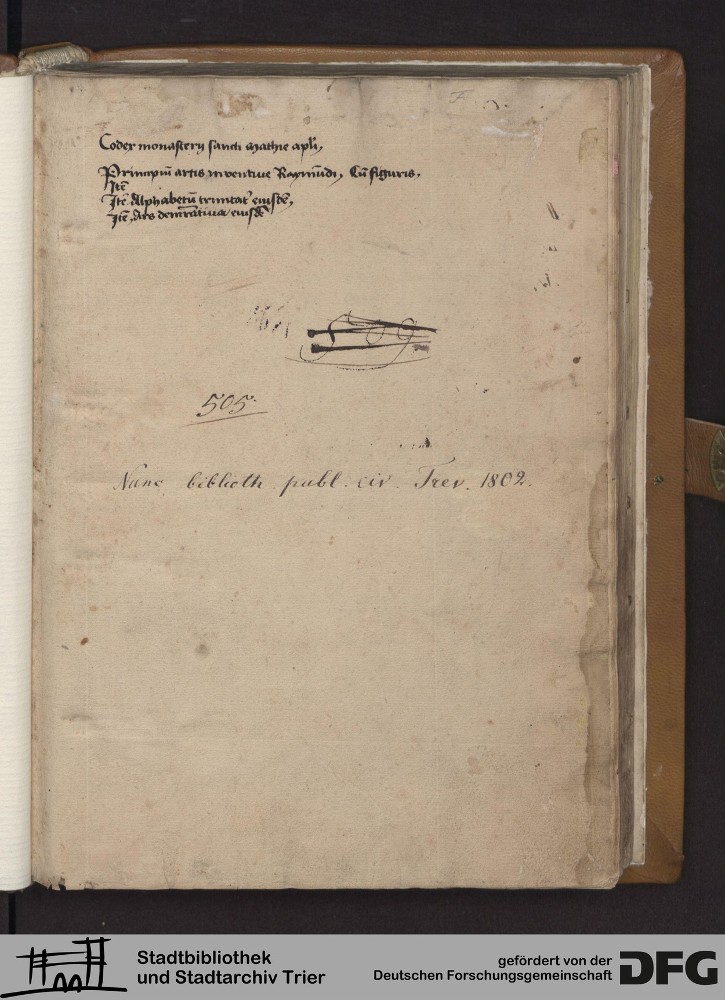 Codex monasterii sancti Mathie apli,
Principiū artis inventiue Raymūdi, Cū figuris,
Itē
Itē Alphabetū trinitat' eiusdē,
Itē Ars demr̄atiua eiusdē
505.
Nunc biblioth. publ. civ. Trev. 1802.
Stadtbibliothek
und Stadtarchiv Trier
gefördert von der
Deutschen Forschungsgemeinschaft
DFG